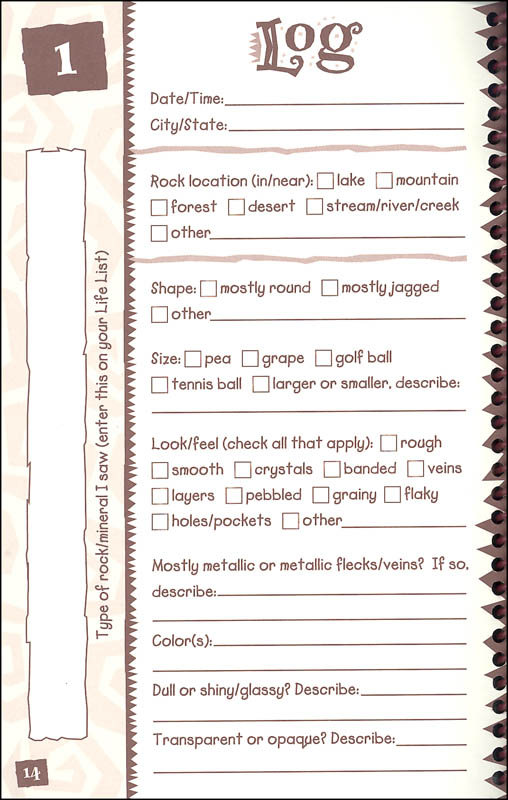 1
Log
Date/Time:
City/State:
Rock location (in/near): lake mountain
forest desert stream/river/creek
other
Shape: mostly round mostly jagged
other
Size: pea grape golf ball
tennis ball larger or smaller, describe:
Look/feel (check all that apply): rough
smooth crystals banded veins
layers pebbled grainy flaky
holes/pockets other
Mostly metallic or metallic flecks/veins? If so,
describe:
Color(s):
Dull or shiny/glassy? Describe:
Transparent or opaque? Describe:
Type of rock/mineral I saw (enter this on your Life List)
14